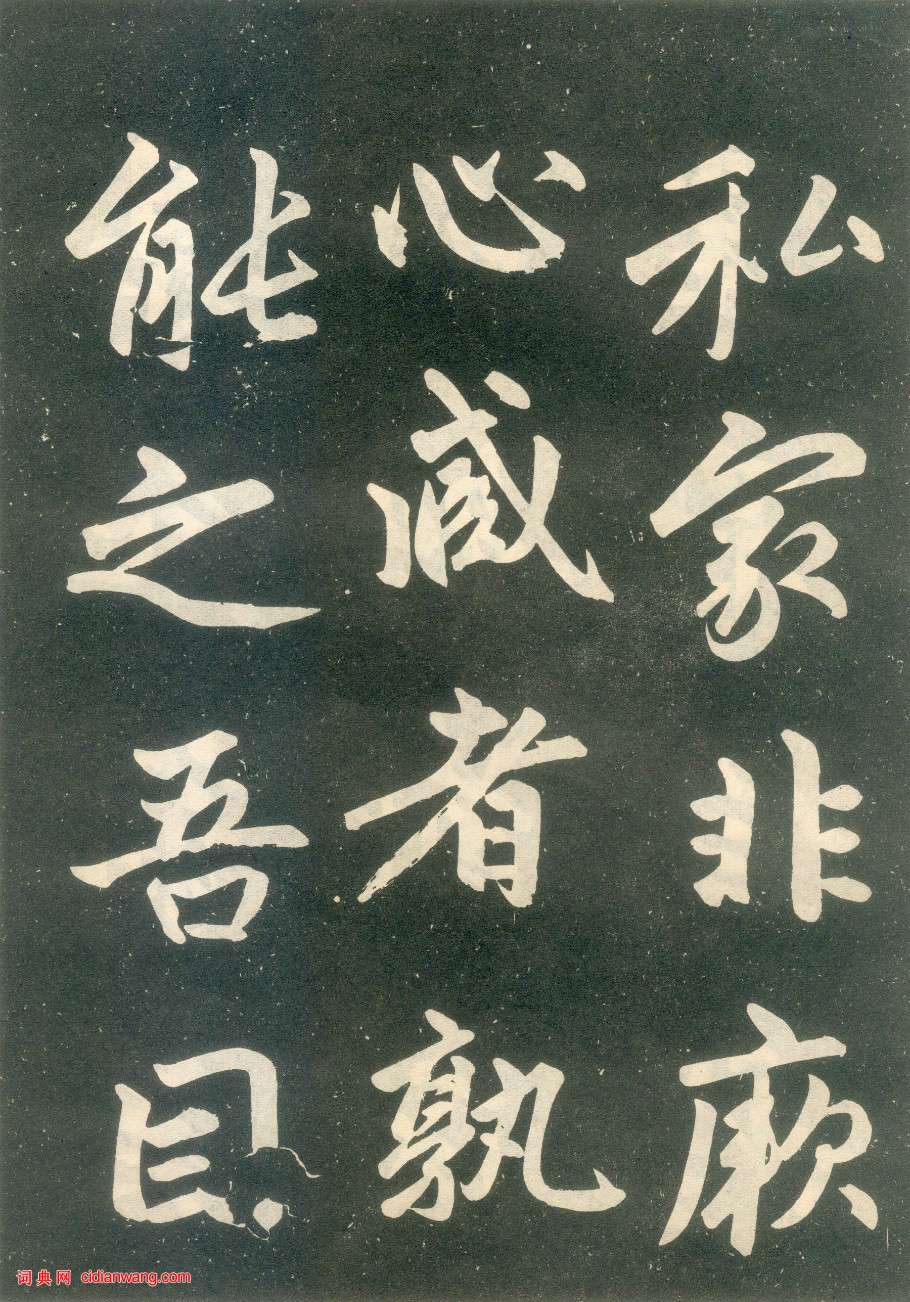 私家非厥
心臧者孰
能之吾目
词典网 cidianwang.com